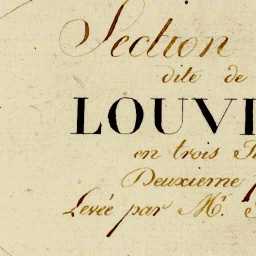 Section
dite de
LOUVI
en trois
Deuxieme
Levée par Mr.